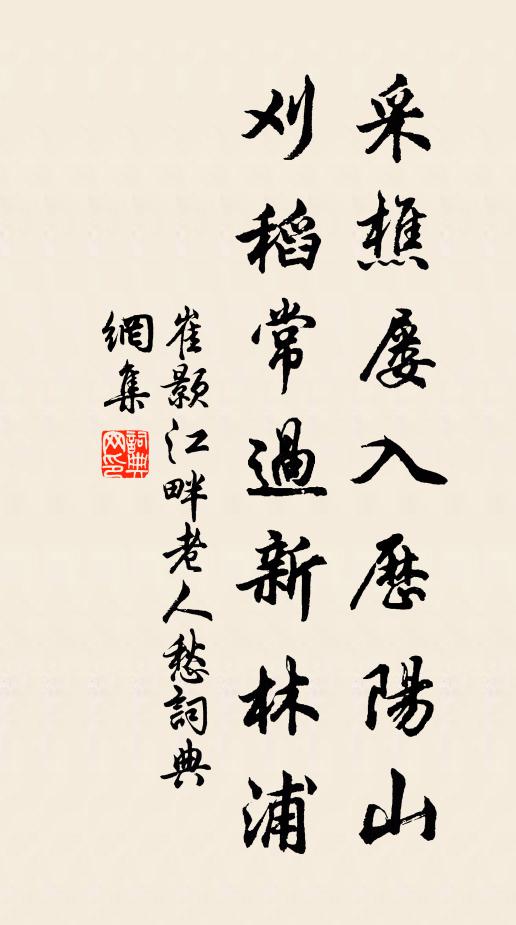 采樵屡入歷陽山
刈稻常過新林浦
崔颢江畔老人愁詞典
網集
詞典
网印